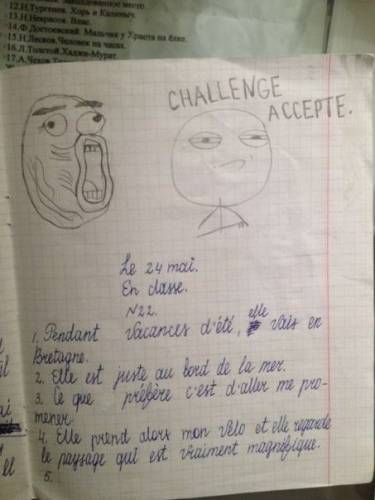 12.И.Тургенев. Хорь и Калиныч.
13.Н.Некрасов. Влас.
14.Ф.Достоевский. Мальчик у Христа на ёлке.
15.Н.Лесков. Человек на часах.
16.Л.Толстой. Хаджи-Мурат.
17.А.Чехов.
CHALLENGE
ACCEPTE.
Le 24 mai.
En classe.
N22.
1. Pendant vacances d'été, elle vais en
Bretagne.
2. Elle est juste au bord de la mer.
3. Ce que préfère c'est d'aller me pro-
mener.
4. Elle prend alors mon vélo et elle regarde
le paysage qui est vraiment magnéfique.
5.